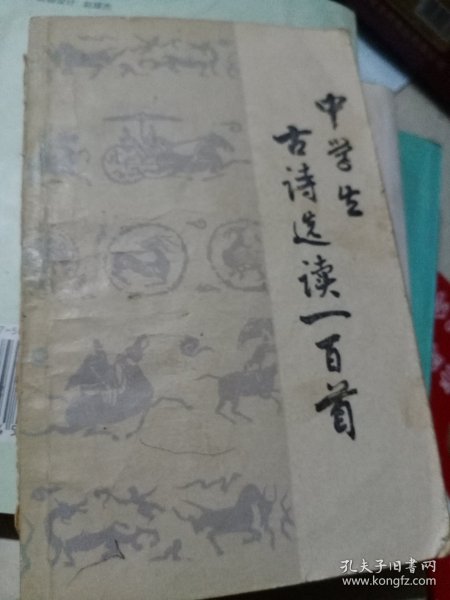 中学生
古诗选读一百首
孔夫子旧书网
www.kongfz.com